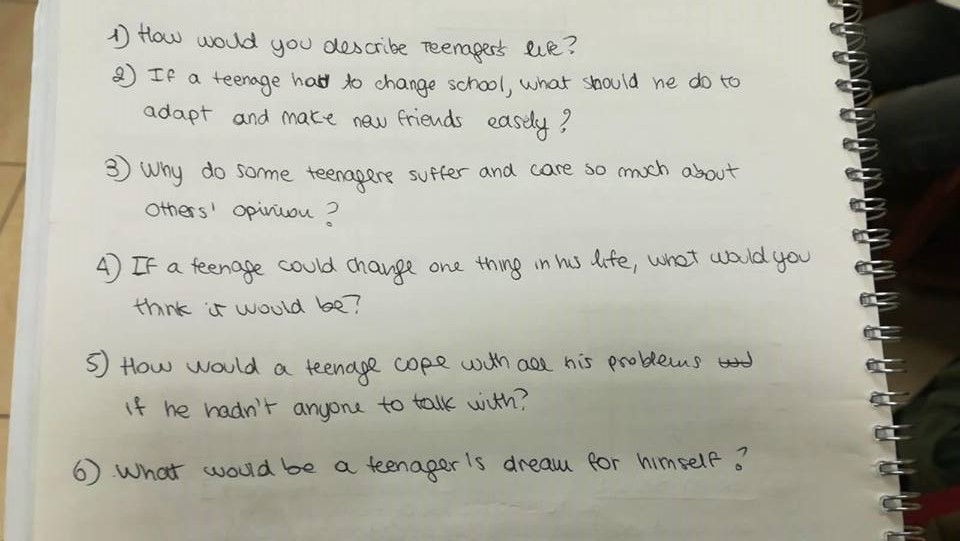 1) How would you describe Teenager's life?
2) If a teenage had to change school, what should he do to
adapt and make new friends easely?
3) Why do some teenagers suffer and care so much about
others' opinion?
4) If a teenage could change one thing in his life, what would you
think it would be?
5) How would a teenage cope with all his problems
if he hadn't anyone to talk with?
6) What would be a teenager's dream for himself?